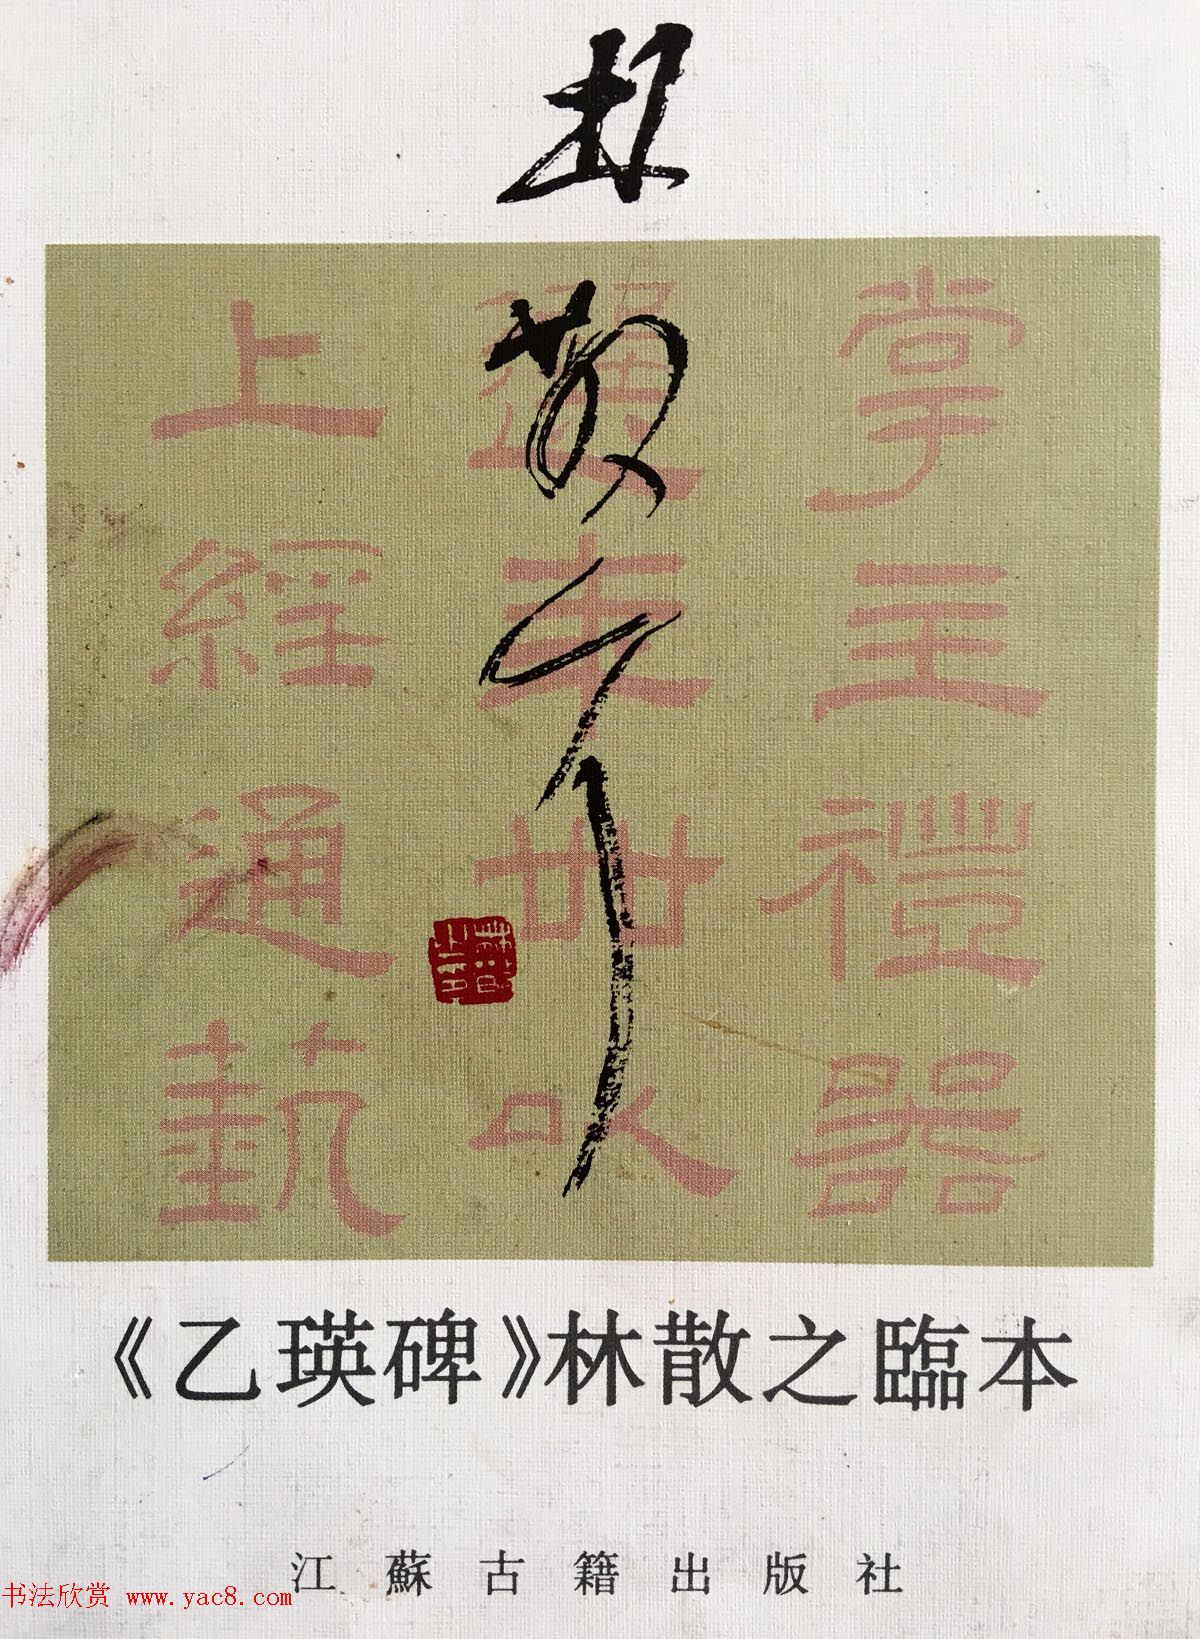 林散
掌主禮器
選年卌以
上經通藝
《乙瑛碑》林散之臨本
江蘇古籍出版社
书法欣赏 www.yac8.com